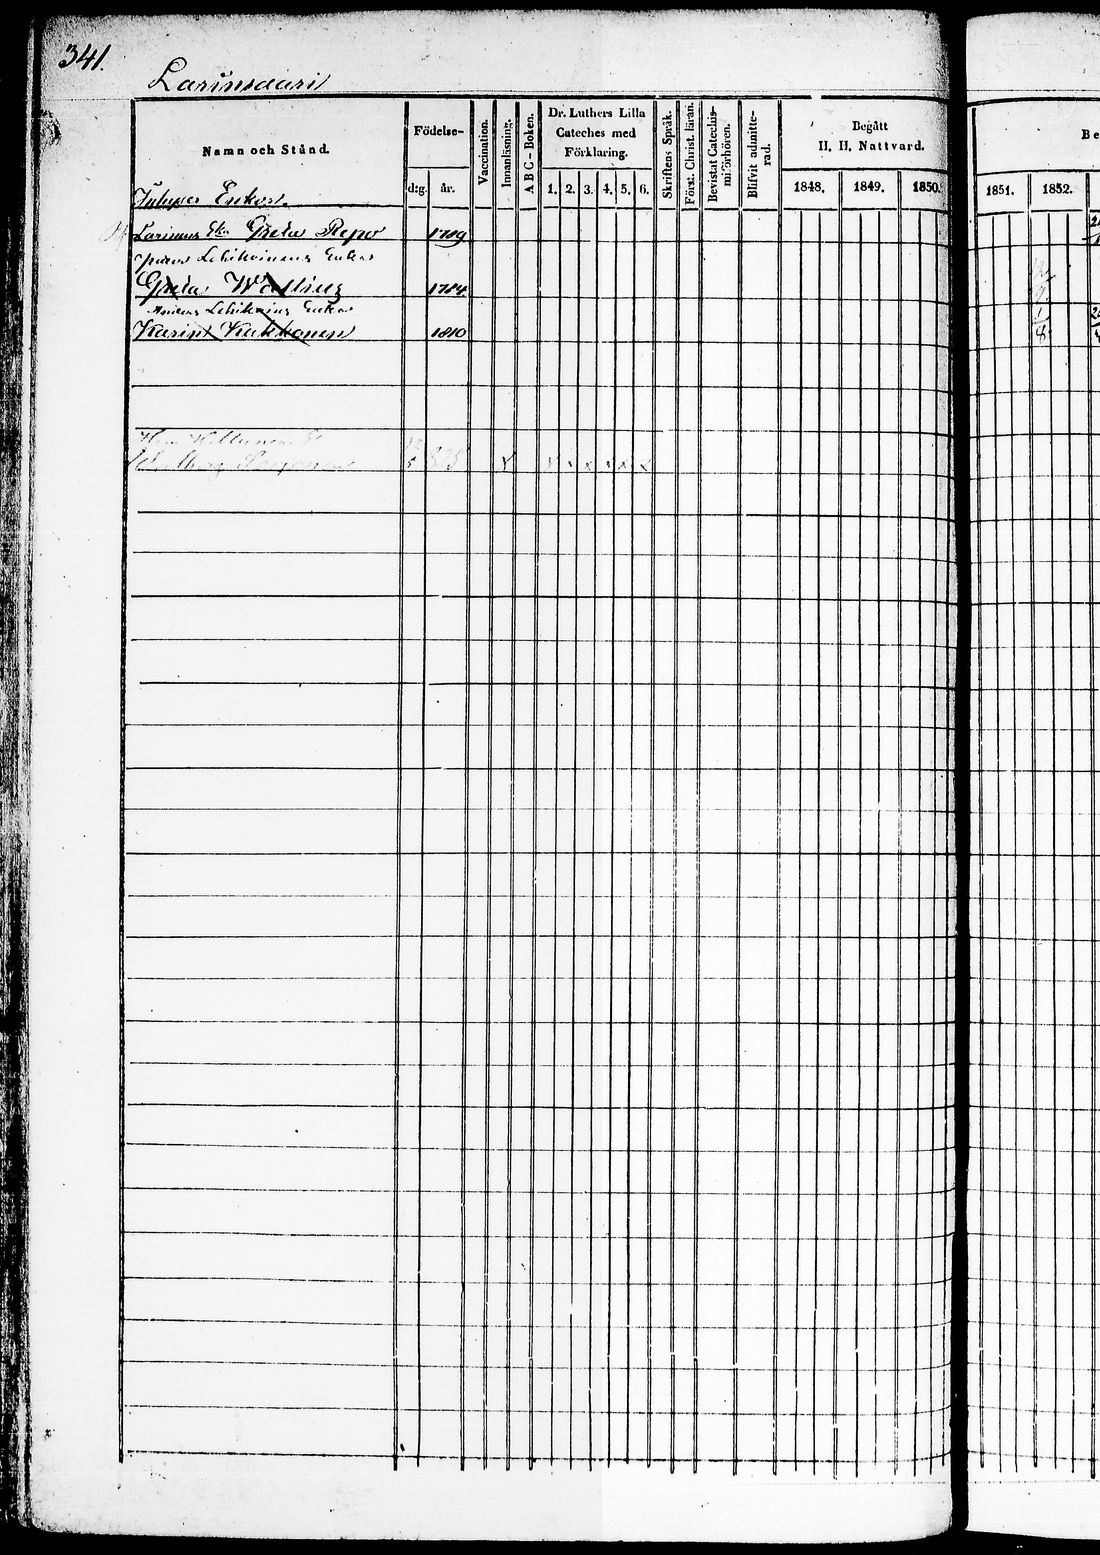 341.
Larinsaari
Namn och Stånd.
Födelse-
d:g. år.
Vaccination.
Innanläsning.
A B C - Boken.
Dr. Luthers Lilla
Cateches med
Förklaring.
1. 2. 3. 4. 5. 6.
Skriftens Språk.
Först. Christ. läran.
Bevistat Catechis-
miförhören.
Blifvit admitte-
rad.
Begått
H. H. Nattvard.
1848. 1849. 1850.
Be
1851. 1852.
Enkor
Greta Repo 1789
Lehikoinens Enka
Greta 1784
Anders Lehikoins Enka
Karin Kukkonen 1810